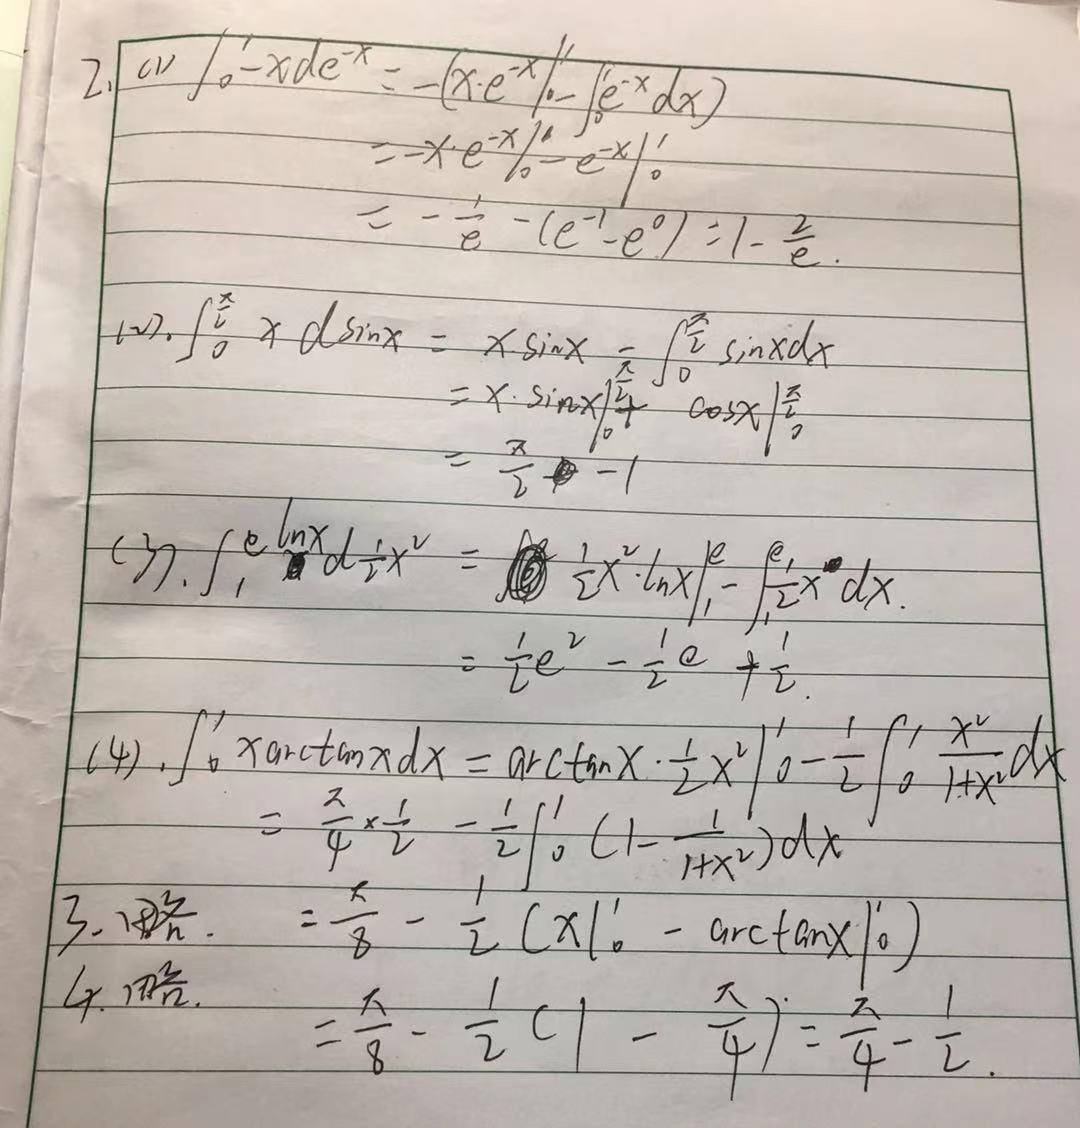 2. (1) ∫₀¹ -xde⁻ˣ = -(x·e⁻ˣ|₀¹ - ∫₀¹ e⁻ˣ dx)
= -x·e⁻ˣ|₀¹ - e⁻ˣ|₀¹
= - 1/e - (e⁻¹ - e⁰) = 1 - 2/e .
(2). ∫₀^(π/2) x d sinx = x sinx - ∫₀^(π/2) sinxdx
= x· sinx|₀^(π/2) + cosx|₀^(π/2)
= π/2 - 1
(3). ∫₁ᵉ lnx d ½x² = ½x²·lnx|₁ᵉ - ∫₁ᵉ ½x dx.
= ½e² - ½e + ½.
(4). ∫₀¹ xarctanxdx = arctanx · ½x²|₀¹ - ½∫₀¹ x²/(1+x²) dx
= π/4 × ½ - ½∫₀¹ (1 - 1/(1+x²))dx
3. 略. = π/8 - ½ (x|₀¹ - arctanx|₀¹)
4. 略. = π/8 - ½ (1 - π/4) = π/4 - ½ .